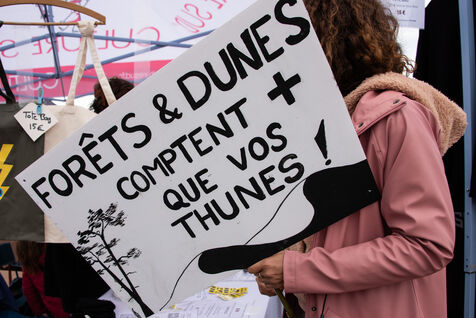 FORÊTS & DUNES
COMPTENT +
QUE VOS
THUNES !
Tote Bag
15€